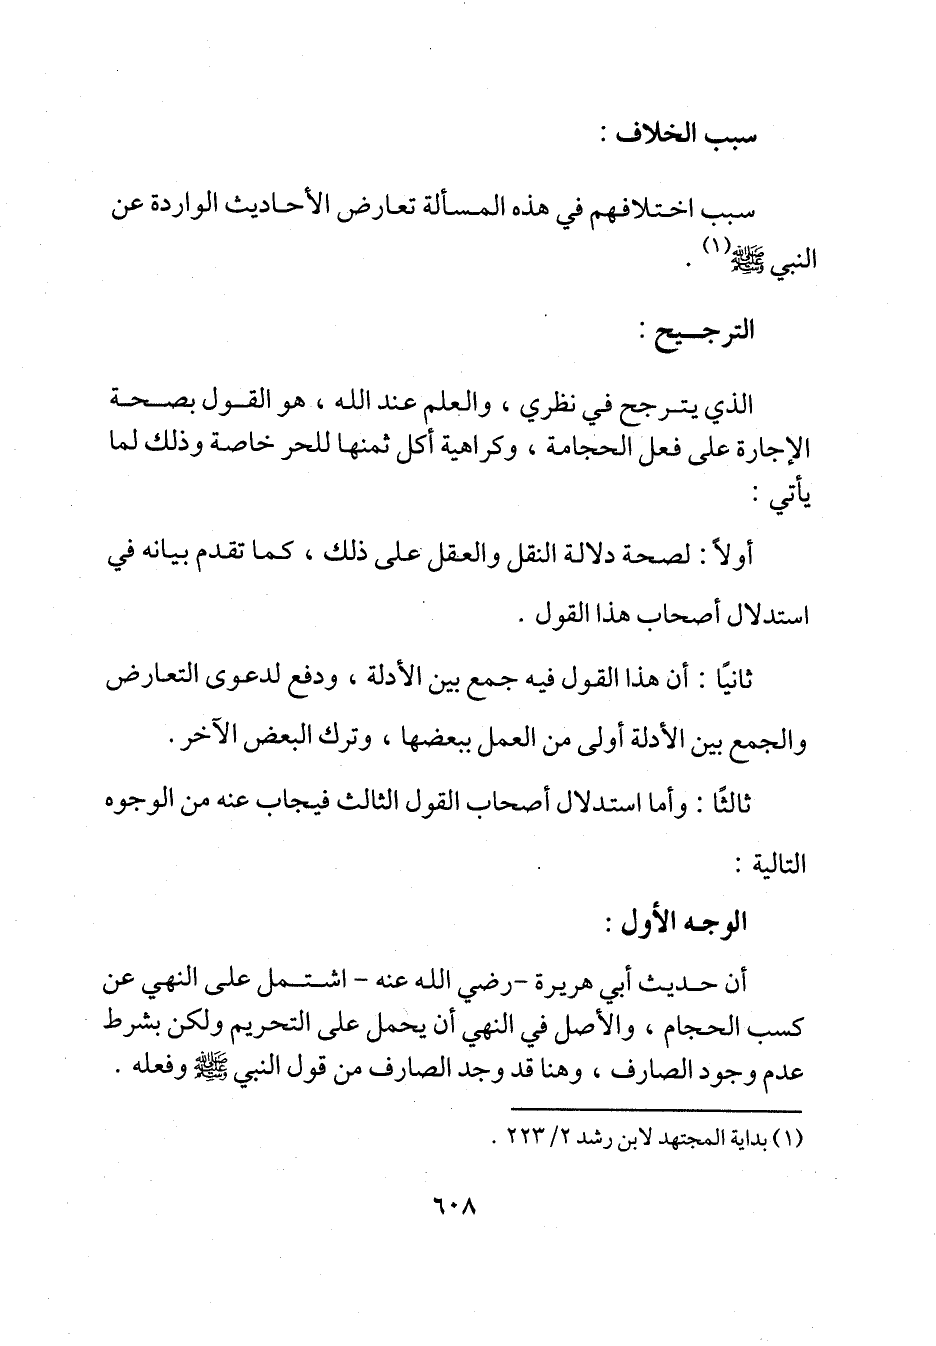 سبب الخلاف :
سبب اختلافهم في هذه المسألة تعارض الأحاديث الواردة عن
النبي ﷺ(١) .
الترجيح :
الذي يترجح في نظري ، والعلم عند الله ، هو القول بصحة
الإجارة على فعل الحجامة ، وكراهية أكل ثمنها للحر خاصة وذلك لما
يأتي :
أولاً : لصحة دلالة النقل والعقل على ذلك ، كما تقدم بيانه في
استدلال أصحاب هذا القول .
ثانيًا : أن هذا القول فيه جمع بين الأدلة ، ودفع لدعوى التعارض
والجمع بين الأدلة أولى من العمل ببعضها ، وترك البعض الآخر .
ثالثًا : وأما استدلال أصحاب القول الثالث فيجاب عنه من الوجوه
التالية :
الوجه الأول :
أن حديث أبي هريرة -رضي الله عنه - اشتمل على النهي عن
كسب الحجام ، والأصل في النهي أن يحمل على التحريم ولكن بشرط
عدم وجود الصارف ، وهنا قد وجد الصارف من قول النبي ﷺ وفعله .
(١) بداية المجتهد لابن رشد ٢/ ٢٢٣ .
٦٠٨